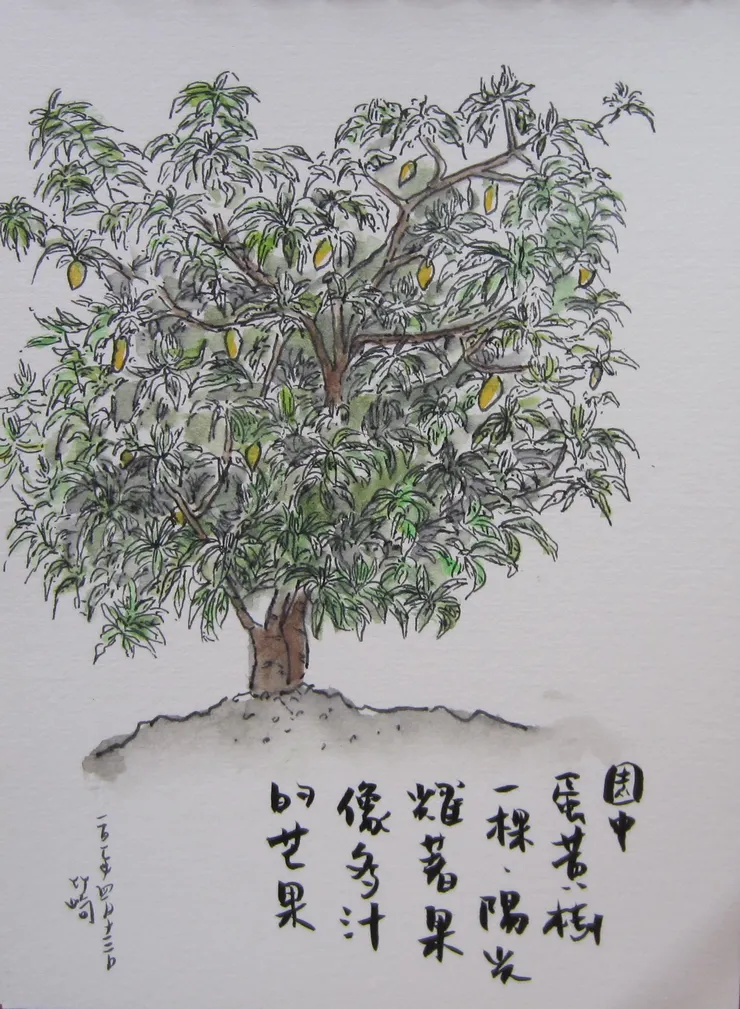 園中
蛋黃樹
一棵、陽光
耀著果
像多汁
的芒果
一百七年四月十二日
竹崎